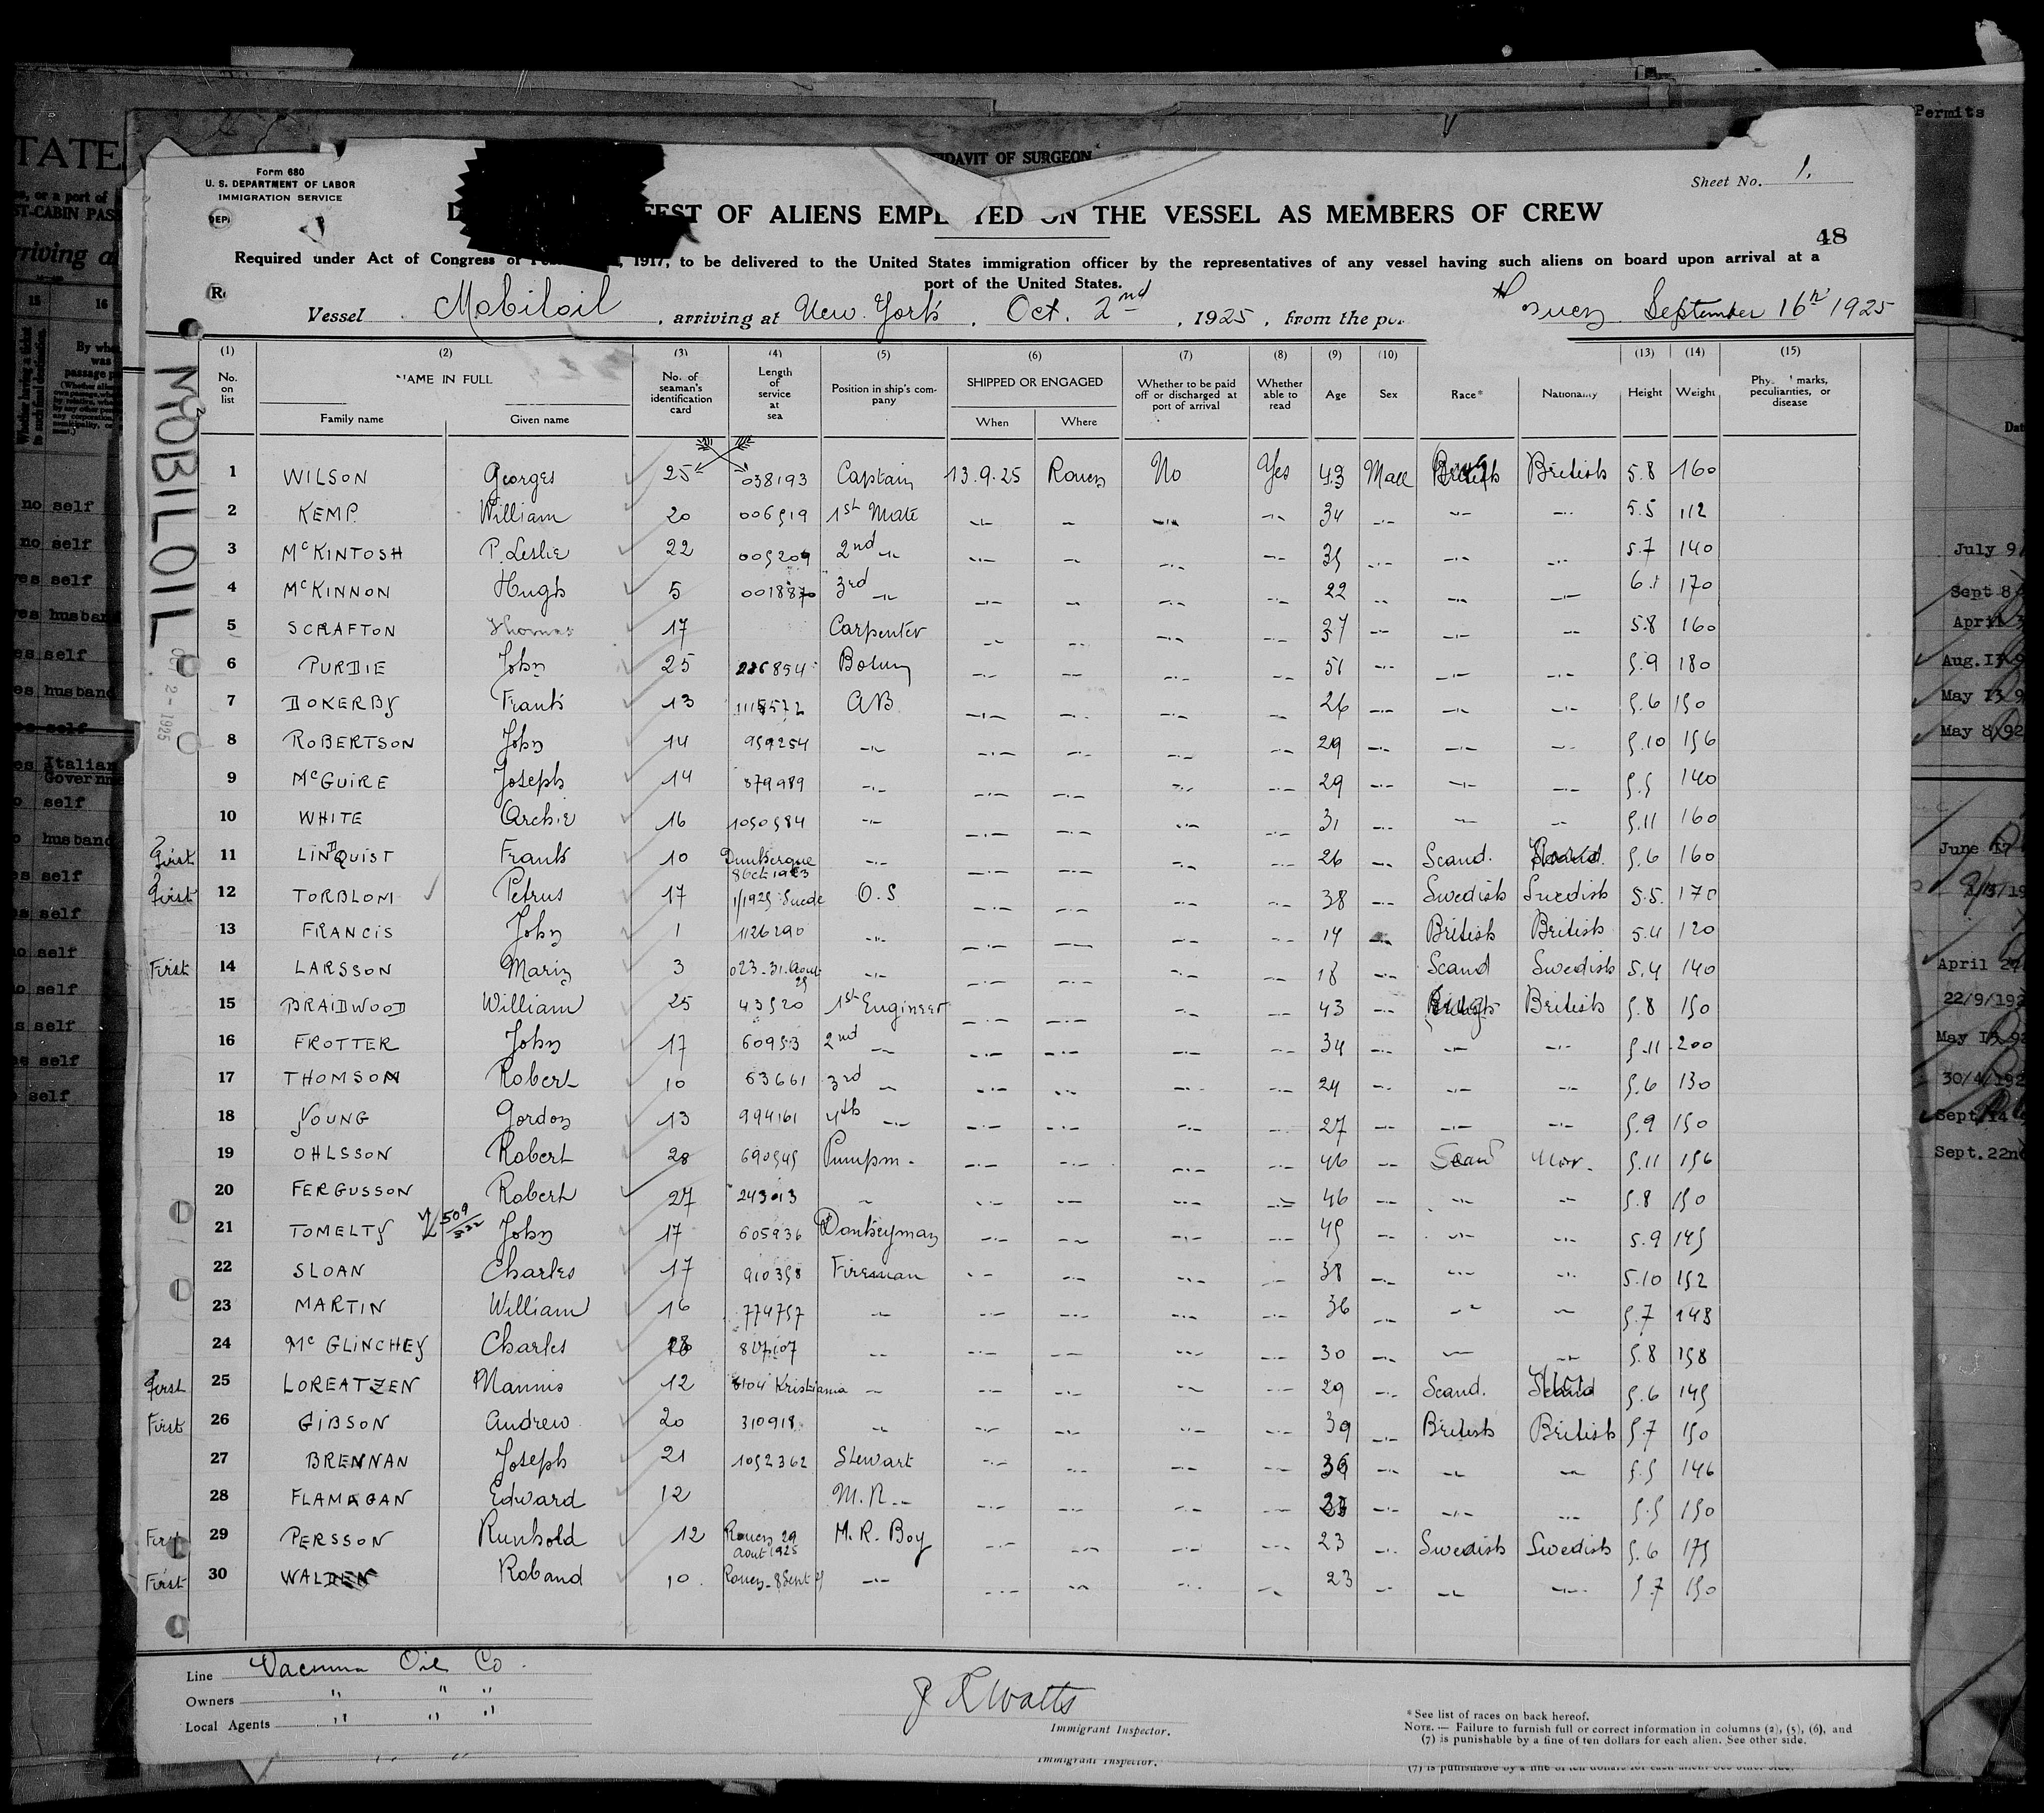 Form 680
U. S. DEPARTMENT OF LABOR
IMMIGRATION SERVICE
AVIT OF SURGEON
Sheet No. 1.
FEST OF ALIENS EMPL YED ON THE VESSEL AS MEMBERS OF CREW
48
Required under Act of Congress of , 1917, to be delivered to the United States immigration officer by the representatives of any vessel having such aliens on board upon arrival at a
port of the United States.
Vessel Mobiloil, arriving at New York, Oct. 2nd, 1925, from the por September 16th 1925
(1) (2) (3) (4) (5) (6) (7) (8) (9) (10) (13) (14) (15)
No. on list NAME IN FULL No. of seaman's identification card Length of service at sea Position in ship's company SHIPPED OR ENGAGED Whether to be paid off or discharged at port of arrival Whether able to read Age Sex Race* Nationality Height Weight Phy marks, peculiarities, or disease
Family name Given name When Where
MOBILOIL
2 - 1925
1 WILSON Georges 25 038193 Captain 13.9.25 Rouen No Yes 43 Male British 5.8 160
2 KEMP. William 20 006919 1st Mate -.- - -.- -.- 34 -.- -.- -.- 5.5 112
3 McKINTOSH P. Leslie 22 005209 2nd -.- -.- -.- -.- -.- 35 -.- -.- -.- 5.7 140
4 McKINNON Hugh 5 001887 3rd -.- -.- -.- -.- -.- 22 -.- -.- -.- 6.1 170
5 SCRAFTON Thomas 17 Carpenter -.- -.- -.- -.- 37 -.- -.- -.- 5.8 160
6 PURDIE John 25 226854 -.- -.- -.- -.- 51 -.- -.- -.- 5.9 180
7 DOKERBY Frank 13 AB -.- -.- -.- -.- 26 -.- -.- -.- 5.6 150
8 ROBERTSON John 14 959254 -.- -.- -.- -.- -.- 29 -.- -.- -.- 5.10 156
9 McGUIRE Joseph 14 379989 -.- -.- -.- -.- -.- 29 -.- -.- -.- 5.5 140
10 WHITE Archie 16 1050584 -.- -.- -.- -.- -.- 31 -.- -.- -.- 5.11 160
First 11 LINDQUIST Frank 10 Dunkerque 8 Oct 1923 -.- -.- -.- -.- -.- 26 -.- Scand. 5.6 160
First 12 TORBLOM Petrus 17 1/1925 Suede O.S -.- -.- -.- -.- 38 -.- Swedish Swedish 5.5. 170
13 FRANCIS John 1 1126290 -.- -.- -.- -.- -.- 19 -.- British British 5.4 120
First 14 LARSSON Marin 3 023-31.Aout 25 -.- -.- -.- -.- -.- 18 -.- Scand Swedish 5.4 140
15 BRAIDWOOD William 25 43520 1st Engineer -.- -.- -.- -.- 43 -.- British 5.8 150
16 FROTTER John 17 60953 2nd - -.- -.- -.- -.- 34 -.- -.- -.- 5.11 200
17 THOMSON Robert 10 63661 3rd - -.- -.- -.- -.- 24 -.- -.- -.- 5.6 130
18 YOUNG Gordon 13 994161 4th -.- -.- -.- -.- -.- 27 -.- -.- -.- 5.9 150
19 OHLSSON Robert 28 690545 Pumpm. -.- -.- -.- -.- 46 -.- Scand Nor. 5.11 156
20 FERGUSSON Robert 27 243013 - -.- -.- -.- -.- 46 -.- -.- -.- 5.8 150
21 TOMELTY 509/522 John 17 605936 Donkeyman -.- -.- -.- -.- 45 -.- -.- -.- 5.9 145
22 SLOAN Charles 17 910358 Fireman -.- -.- -.- -.- 38 -.- -.- -.- 5.10 152
23 MARTIN William 16 774757 - -.- -.- -.- -.- 36 -.- -.- -.- 5.7 148
24 Mc GLINCHEY Charles 827107 - -.- -.- -.- -.- 30 -.- - -.- 5.8 158
First 25 LOREATZEN Mannis 12 6104 Kristiania - -.- -.- -.- -.- 29 -.- Scand. 5.6 145
First 26 GIBSON Andrew 20 310918 - -.- -.- -.- -.- 39 -.- British British 5.7 150
27 BRENNAN Joseph 21 1052362 Stewart -.- -.- -.- -.- 36 -.- -.- -.- 5.5 146
28 FLAMAGAN Edward 12 M.R -.- -.- -.- -.- -.- -.- -.- -.- 5.5 150
First 29 PERSSON Runhold 12 Rouen 29 Aout 1925 M.R. Boy -.- -.- -.- -.- 23 -.- Swedish Swedish 5.6 175
First 30 WALDEN Roband 10. Rouen-8 Sept 25 -.- -.- -.- -.- -.- 23 -.- -.- -.- 5.7 150
Line Vacuum Oil Co.
Owners " " "
Local Agents " " "
J R Watts
Immigrant Inspector.
Immigrant Inspector.
*See list of races on back hereof.
NOTE. — Failure to furnish full or correct information in columns (2), (5), (6), and
(7) is punishable by a fine of ten dollars for each alien. See other side.
(7) is punishable by a fine of ten dollars for each alien. See other side.
TATE
or a port of
ST-CABIN PAS
rriving a
15 16
no self
no self
yes self
yes husband
es self
es husband
es self
es Italian Governme
self
husband
es self
es self
no self
no self
es self
es self
self
Permits
Dat
July 9
Sept 8
April
Aug. 17
May 13 9
May 8/92
June 17
April 24
22/9/192
May 15 92
30/4/192
Sept. 14
Sept. 22nd